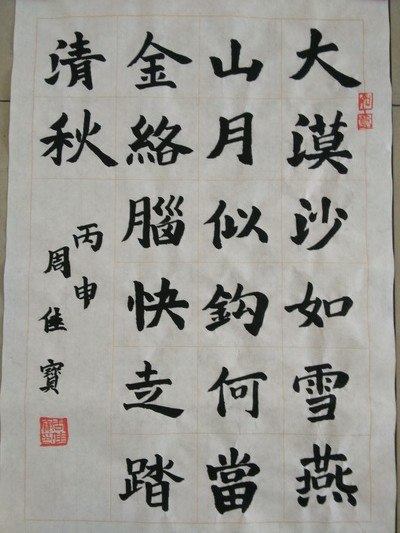 大漠沙如雪燕
山月似鈎何當
金絡腦快走踏
清秋
丙申
周佳寶